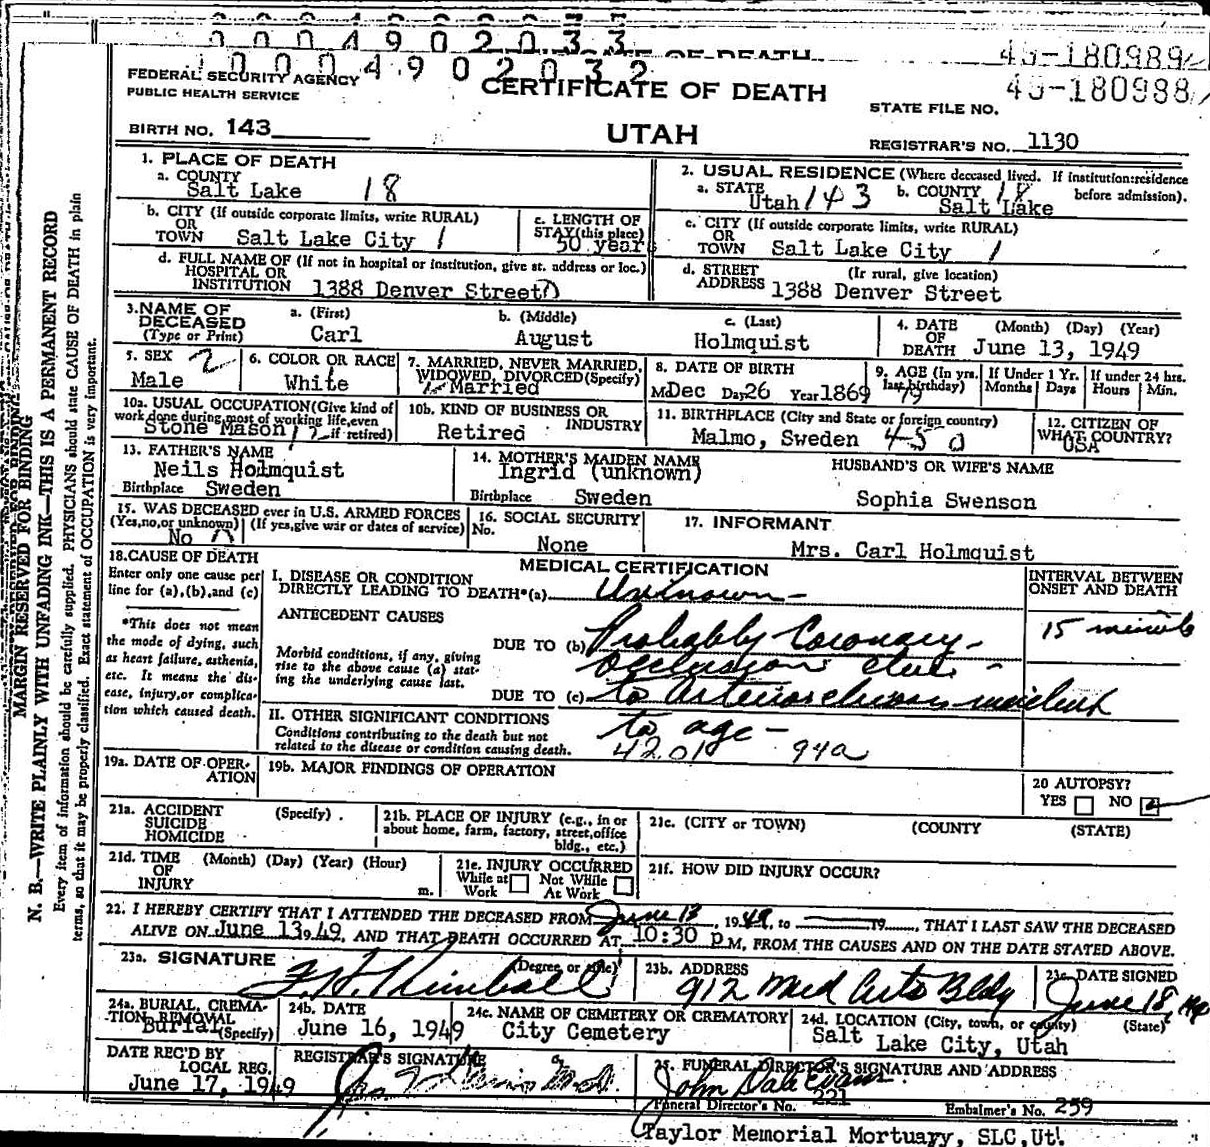 0 0 0 4 9 0 2 0 3 3
OF DEATH
45-180989
0 0 0 4 9 0 2 0 3 2
45-180988
FEDERAL SECURITY AGENCY
PUBLIC HEALTH SERVICE
CERTIFICATE OF DEATH
STATE FILE NO.
BIRTH NO. 143
UTAH
REGISTRAR'S NO. 1130
MARGIN RESERVED FOR BINDING
N. B.—WRITE PLAINLY WITH UNFADING INK—THIS IS A PERMANENT RECORD
Every item of information should be carefully supplied. PHYSICIANS should state CAUSE OF DEATH in plain
terms, so that it may be properly classified. Exact statement of OCCUPATION is very important.
1. PLACE OF DEATH
a. COUNTY
Salt Lake 18
2. USUAL RESIDENCE (Where deceased lived. If institution:residence
before admission).
a. STATE Utah 143 b. COUNTY 18 Salt Lake
b. CITY (If outside corporate limits, write RURAL)
OR
TOWN Salt Lake City 1
c. LENGTH OF
STAY(this place)
50 years
c. CITY (If outside corporate limits, write RURAL)
OR
TOWN Salt Lake City 1
d. FULL NAME OF (If not in hospital or institution, give st. address or loc.)
HOSPITAL OR
INSTITUTION 1388 Denver Street
d. STREET (Ir rural, give location)
ADDRESS 1388 Denver Street
3.NAME OF
DECEASED
(Type or Print)
a. (First)
Carl
b. (Middle)
August
c. (Last)
Holmquist
4. DATE (Month) (Day) (Year)
OF
DEATH June 13, 1949
5. SEX 2
Male
6. COLOR OR RACE
White
7. MARRIED, NEVER MARRIED,
WIDOWED, DIVORCED(Specify)
Married
8. DATE OF BIRTH
Mo Dec Day 26 Year 1869
9. AGE (In yrs.
last birthday)
79
If Under 1 Yr.
Months Days
If under 24 hrs.
Hours Min.
10a. USUAL OCCUPATION(Give kind of
work done during most of working life,even
if retired)
Stone Mason
10b. KIND OF BUSINESS OR
INDUSTRY
Retired
11. BIRTHPLACE (City and State or foreign country)
Malmo, Sweden 450
12. CITIZEN OF
WHAT COUNTRY?
USA
13. FATHER'S NAME
Neils Holmquist
Birthplace Sweden
14. MOTHER'S MAIDEN NAME
Ingrid (unknown)
Birthplace Sweden
HUSBAND'S OR WIFE'S NAME
Sophia Swenson
15. WAS DECEASED ever in U.S. ARMED FORCES
(Yes,no,or unknown) (If yes,give war or dates of service)
No
16. SOCIAL SECURITY
No.
None
17. INFORMANT
Mrs. Carl Holmquist
18.CAUSE OF DEATH
Enter only one cause per
line for (a),(b),and (c)
*This does not mean
the mode of dying, such
as heart failure, asthenia,
etc. It means the dis-
ease, injury,or complica-
tion which caused death.
MEDICAL CERTIFICATION
I. DISEASE OR CONDITION
DIRECTLY LEADING TO DEATH*(a) Unknown -
ANTECEDENT CAUSES
Morbid conditions, if any, giving
rise to the above cause (a) stat-
ing the underlying cause last.
DUE TO (b) Probably Coronary -
occlusion due -
DUE TO (c) to arteriosclerosis incident
to age -
4201 94a
II. OTHER SIGNIFICANT CONDITIONS
Conditions contributing to the death but not
related to the disease or condition causing death.
INTERVAL BETWEEN
ONSET AND DEATH
15 minute
19a. DATE OF OPER-
ATION
19b. MAJOR FINDINGS OF OPERATION
20 AUTOPSY?
YES NO
21a. ACCIDENT (Specify)
SUICIDE
HOMICIDE
21b. PLACE OF INJURY (e.g., in or
about home, farm, factory, street,office
bldg., etc.)
21c. (CITY or TOWN) (COUNTY) (STATE)
21d. TIME (Month) (Day) (Year) (Hour)
OF
INJURY m.
21e. INJURY OCCURRED
While at Not While
Work At Work
21f. HOW DID INJURY OCCUR?
22. I HEREBY CERTIFY THAT I ATTENDED THE DECEASED FROM June 13, 1949, to 19 , THAT I LAST SAW THE DECEASED
ALIVE ON June 13 9.49, AND THAT DEATH OCCURRED AT 10:30 P M, FROM THE CAUSES AND ON THE DATE STATED ABOVE.
23a. SIGNATURE (Degree or title)
Kimball
23b. ADDRESS
912 Med Arts Bldg
23c. DATE SIGNED
June 18, 49
24a. BURIAL, CREMA-
TION REMOVAL
Burial (Specify)
24b. DATE
June 16, 1949
24c. NAME OF CEMETERY OR CREMATORY
City Cemetery
24d. LOCATION (City, town, or county) (State)
Salt
Lake City, Utah
DATE REC'D BY
LOCAL REG.
June 17, 1949
REGISTRAR'S SIGNATURE
25. FUNERAL DIRECTOR'S SIGNATURE AND ADDRESS
John Dale Evans
Funeral Director's No. 221 Embalmer's No. 259
Taylor Memorial Mortuary, SLC,Ut.